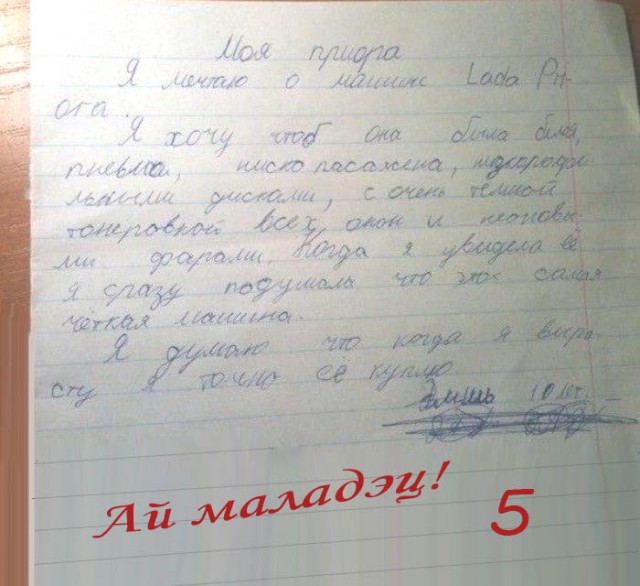 Моя приора
Я мечтаю о машине Lada Pri-
ora.
Я хочу чтоб она была белая,
ниско пасажена,
льными дисками, с очень темной
тонеровкой всех окон и неоновы-
ми фарами. Когда я увидела её
я сразу подумала что это самая
чёткая машина.
Я думаю что когда я выра-
сту я точно её куплю
10 лет.
Ай маладэц!
5